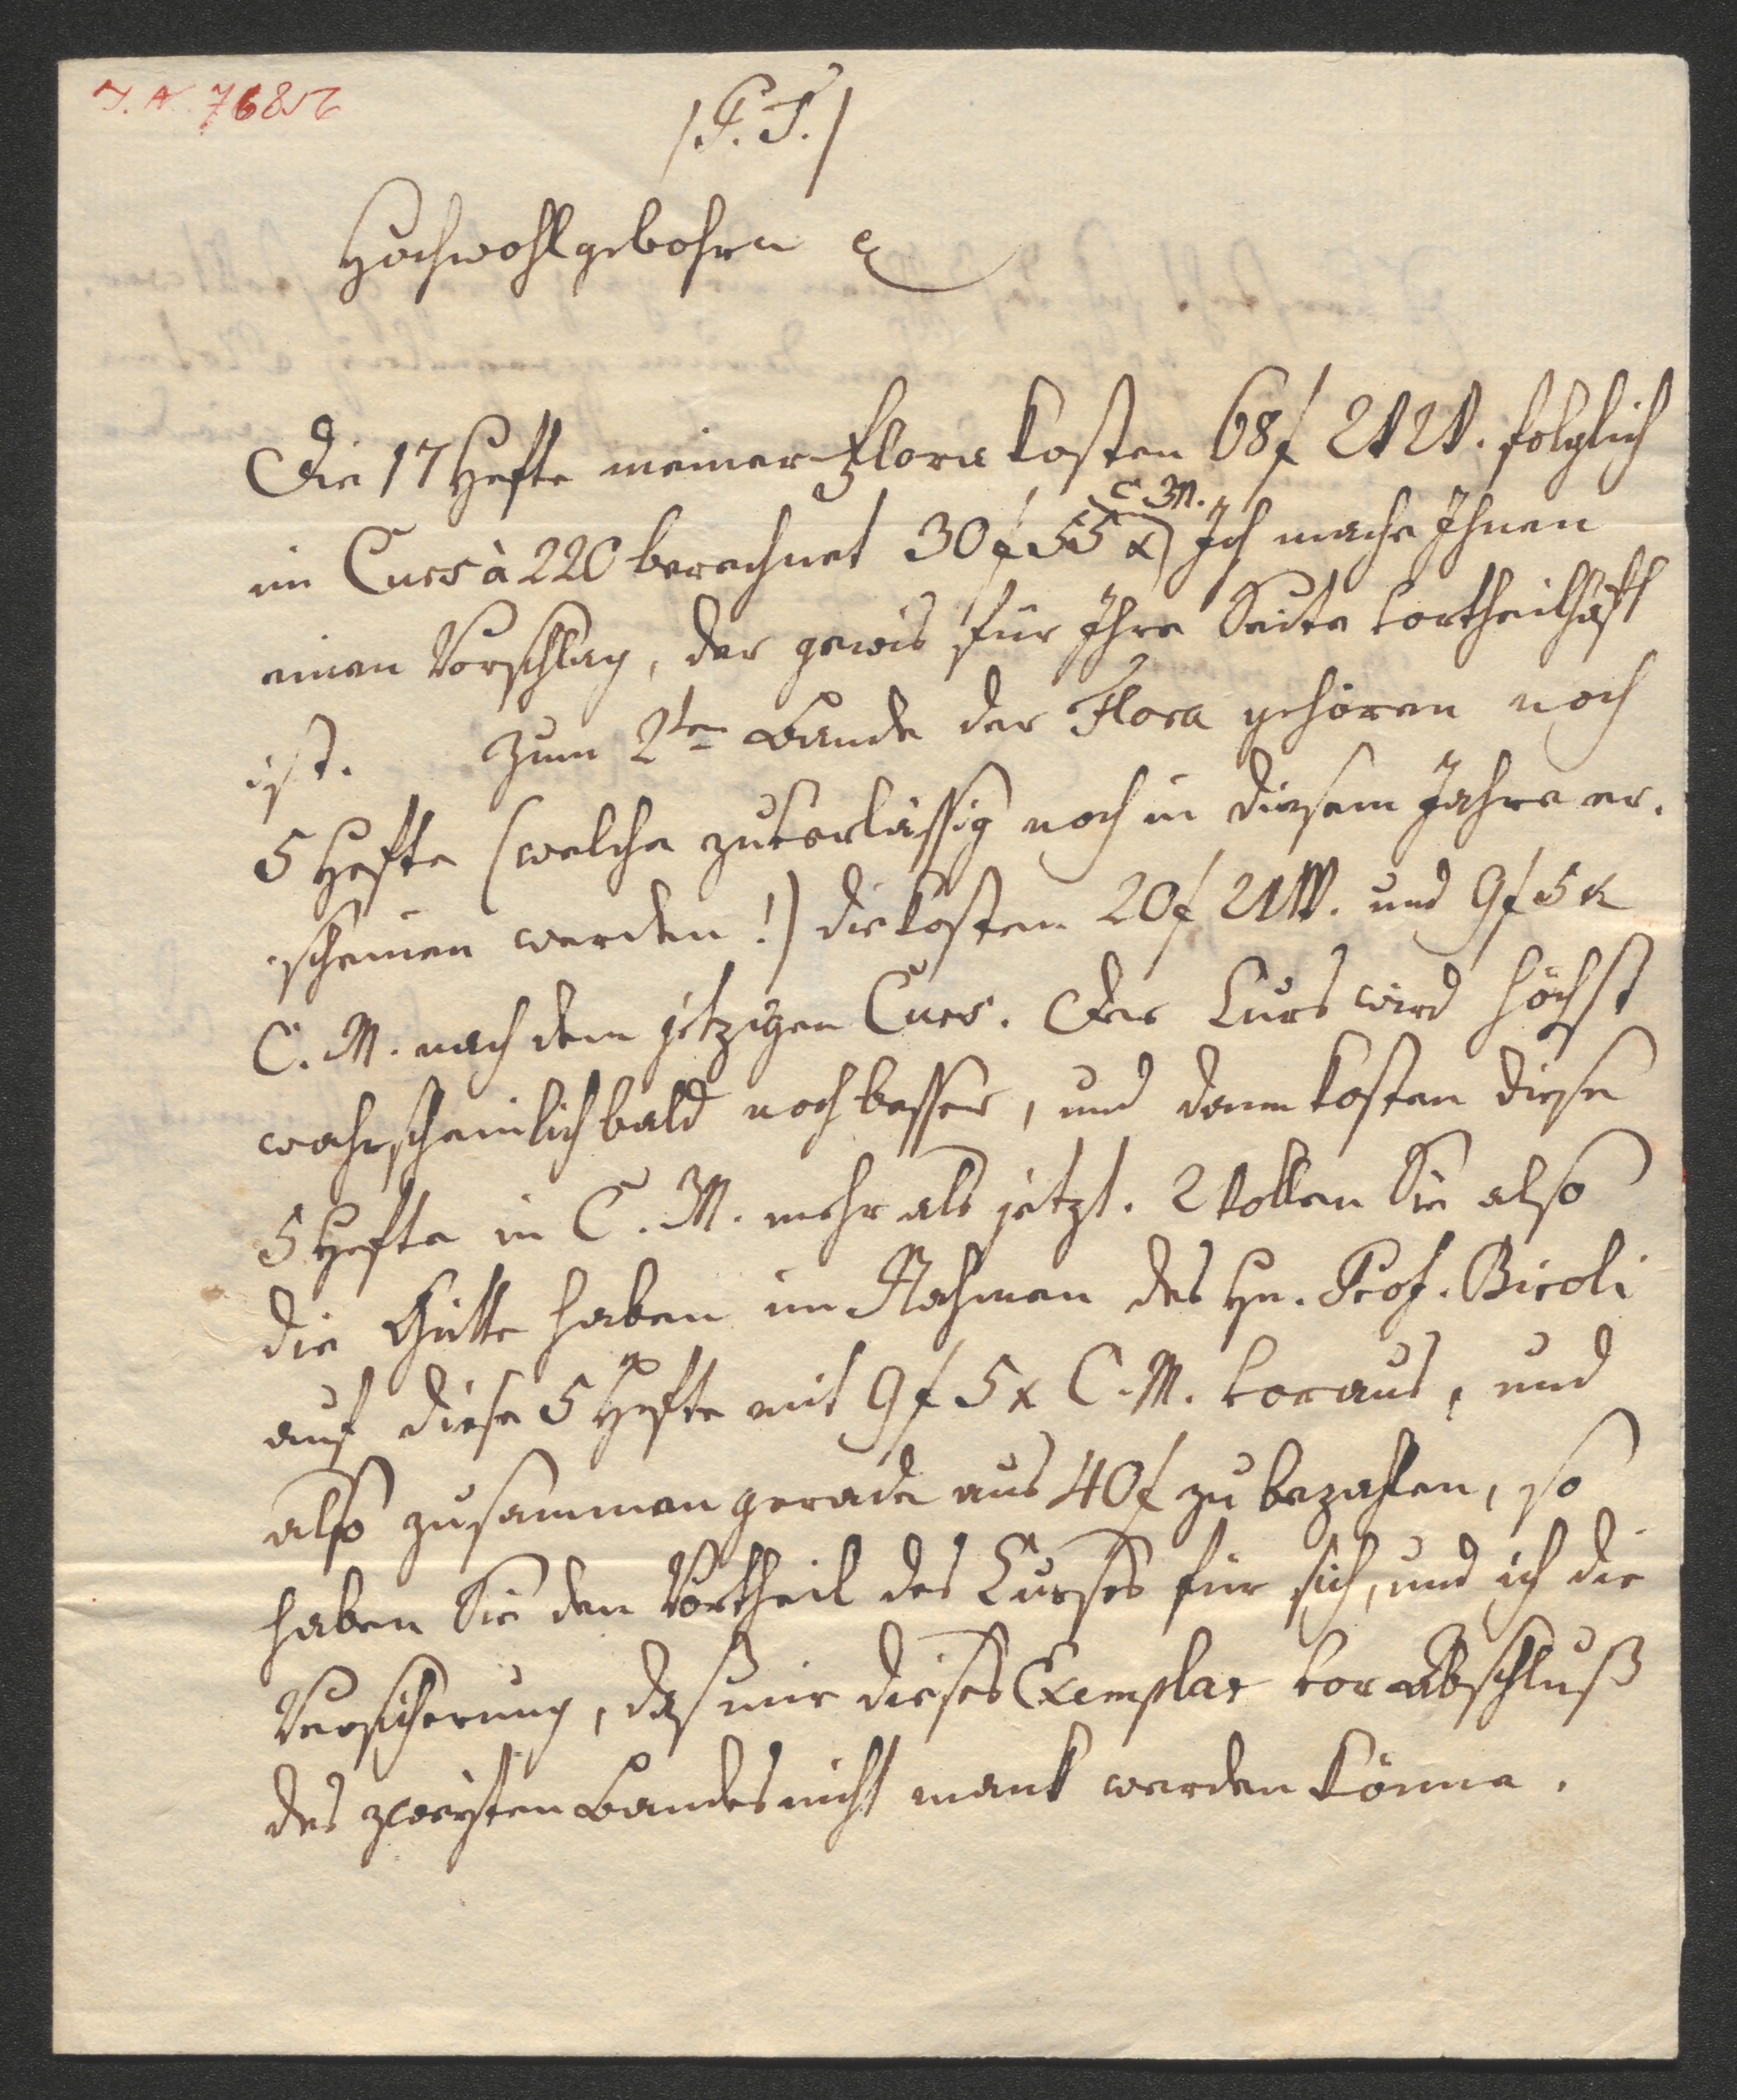 I. N. 76856
/P. T./
Hochwohlgebohrn &
Die 17 Hefte meiner Flora kosten 68 f WW. folglich
im Curs à 220 berechnet 30 f 55 x C. M. Ich mache Ihnen
einen Vorschlag, der gewis für Ihre Seite vortheilhaft
ist. Zum 2ten Bande der Flora gehören noch
5 Hefte (welche zuverlässig noch in diesem Jahre er-
scheinen werden!) die kosten 20 f WW. und 9 f 5 x
C. M. nach dem jetzigen Curs. Der Curs wird höchst
wahrscheinlich bald noch besser, und dann kosten diese
5 Hefte in C. M. mehr als jetzt. Wollen Sie also
die Gütte haben im Nahmen des Hn. Prof. Biroli
auf diese 5 Hefte mit 9 f 5 x C. M. voraus, und
also zusammen gerade aus 40 f zu bezahlen, so
haben Sie den Vortheil des Curses für sich, und ich die
Versicherung, daß mir dieses Exemplar vor Abschluß
des zweyten Bandes nicht mank werden könne.